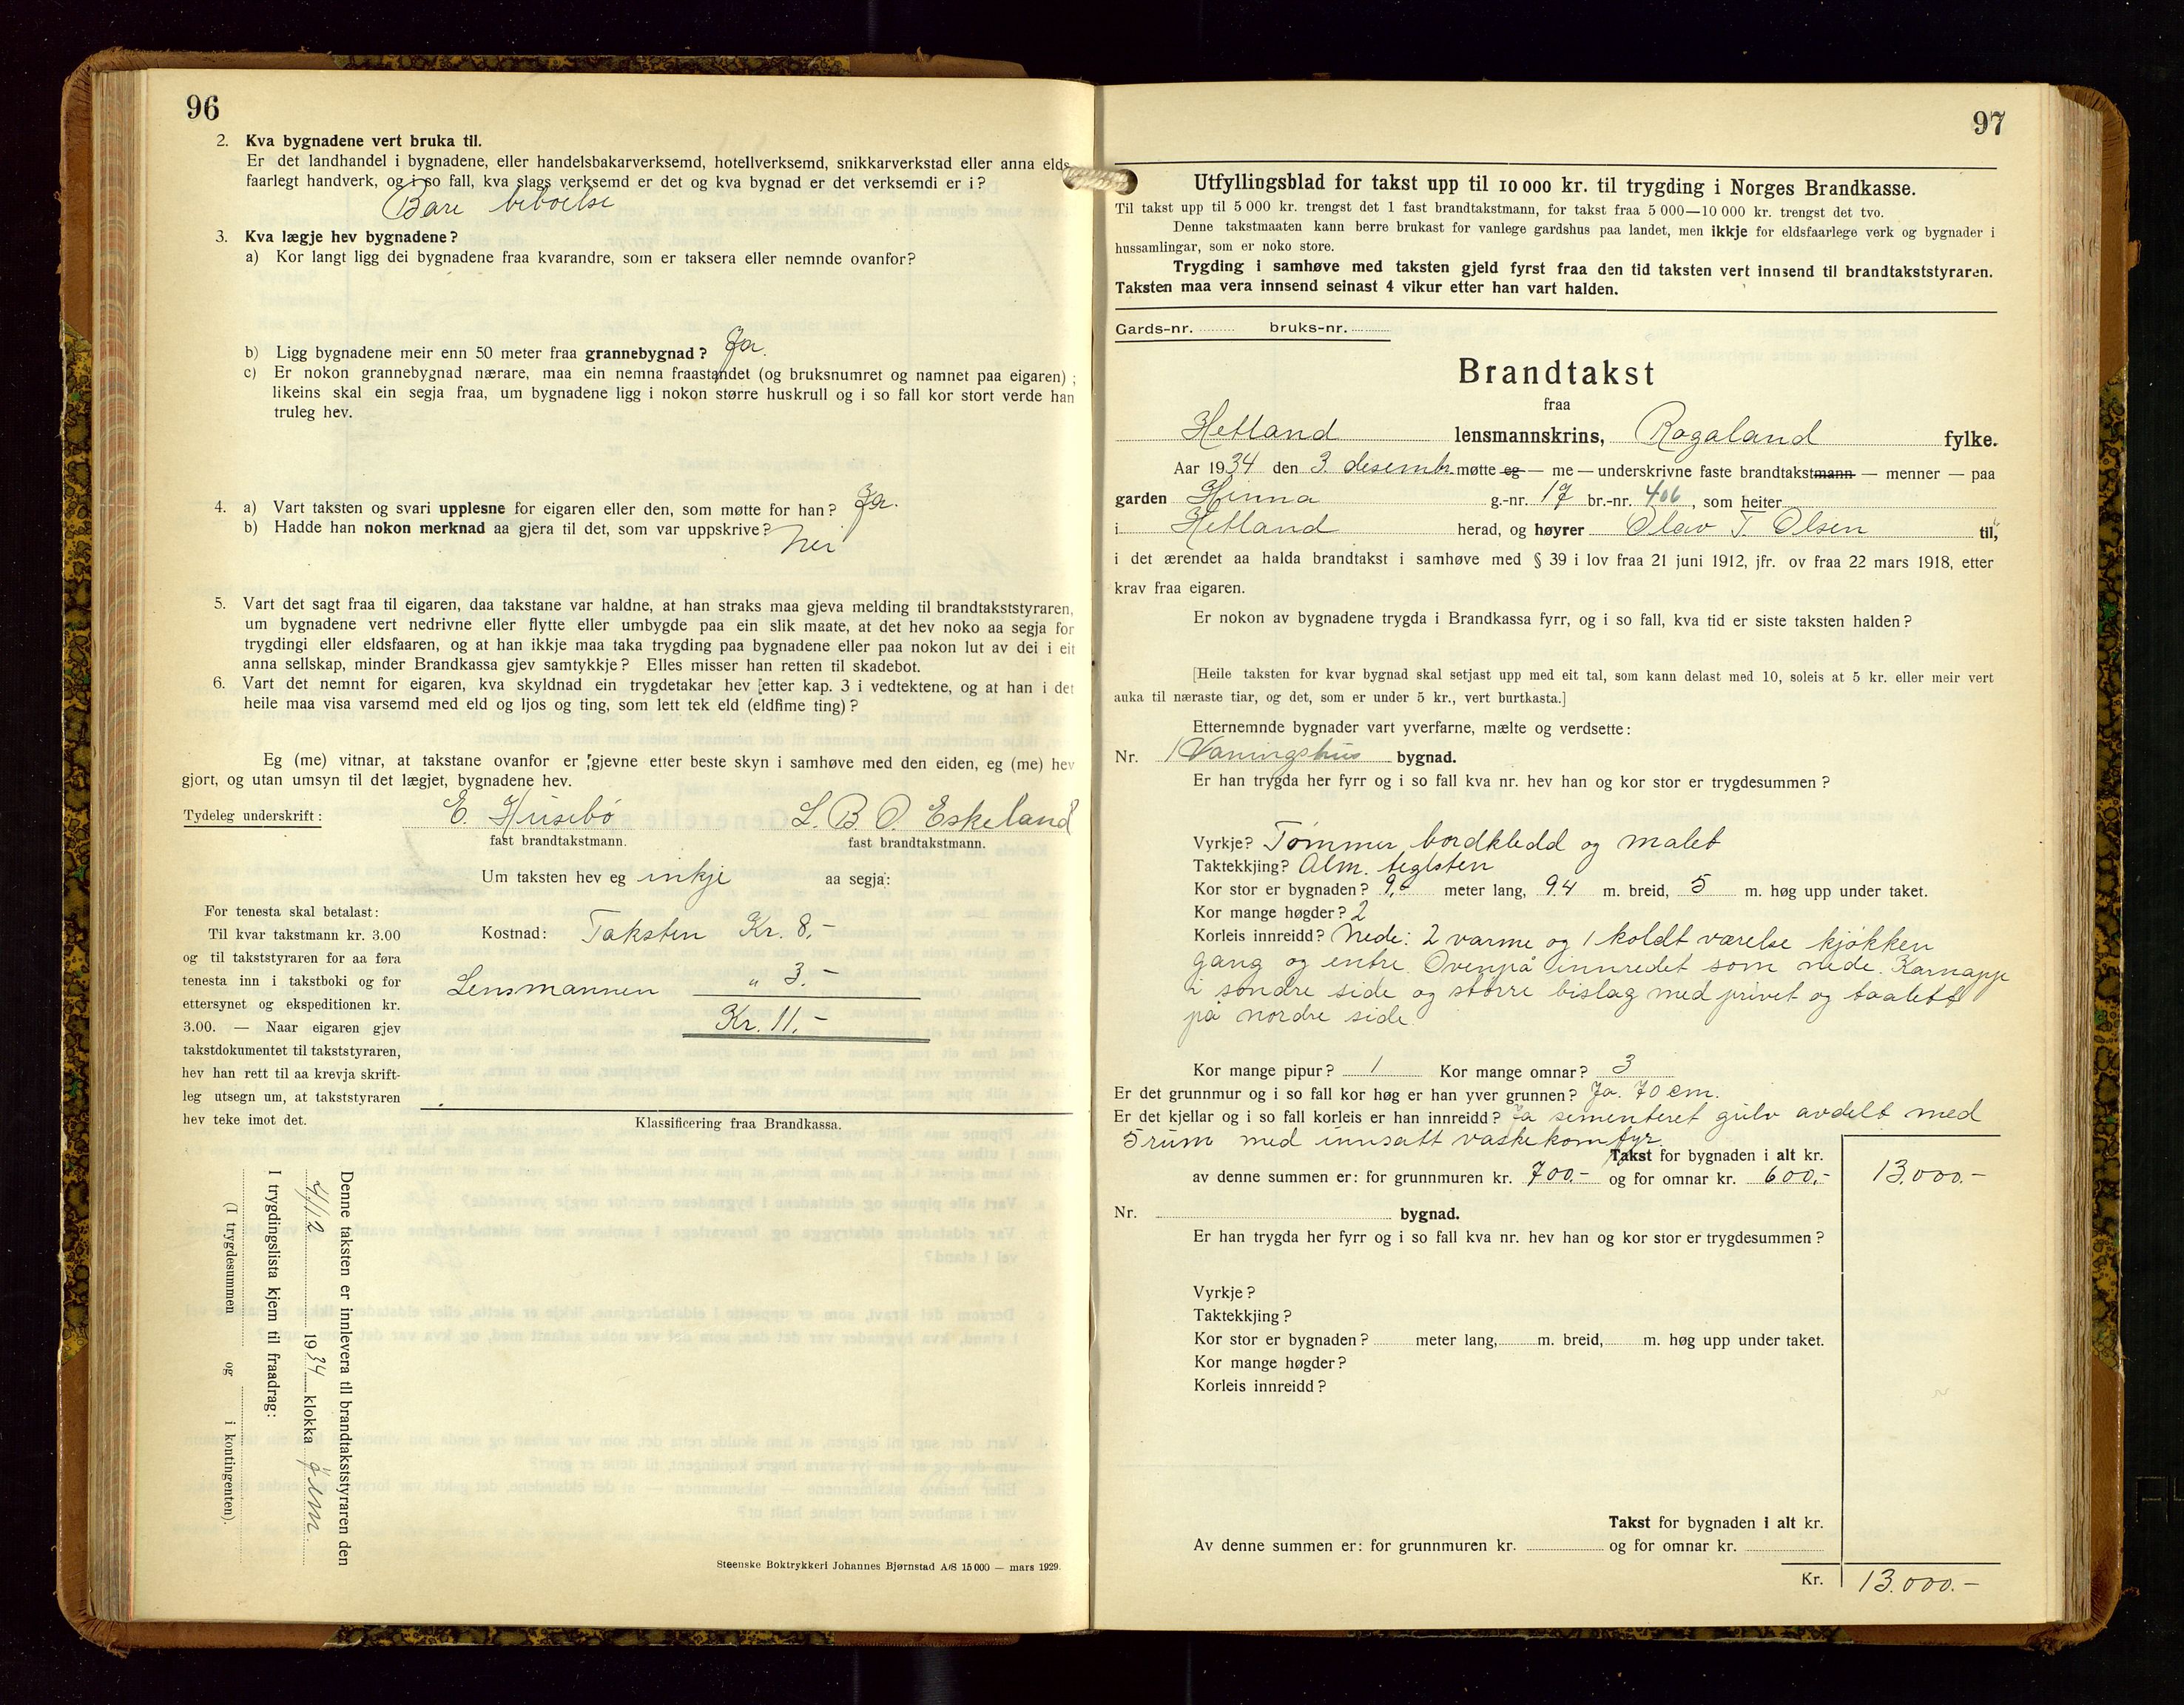 96
2. Kva bygnadene vert bruka til.
Er det landhandel i bygnadene, eller handelsbakarverksemd, hotellverksemd, snikkarverkstad eller anna elds-
faarlegt handverk, og i so fall, kva slags verksemd er det og kva bygnad er det verksemdi er i?
Bare beboelse
3. Kva lægje hev bygnadene?
a) Kor langt ligg dei bygnadene fraa kvarandre, som er taksera eller nemnde ovanfor?
b) Ligg bygnadene meir enn 50 meter fraa grannebygnad? Ja.
c) Er nokon grannebygnad nærare, maa ein nemna fraastandet (og bruksnumret og namnet paa eigaren);
likeins skal ein segja fraa, um bygnadene ligg i nokon større huskrull og i so fall kor stort verde han
truleg hev.
4. a) Vart taksten og svari upplesne for eigaren eller den, som møtte for han? Ja.
b) Hadde han nokon merknad aa gjera til det, som var uppskrive? Nei
5. Vart det sagt fraa til eigaren, daa takstane var haldne, at han straks maa gjeva melding til brandtakststyraren,
um bygnadene vert nedrivne eller flytte eller umbygde paa ein slik maate, at det hev noko aa segja for
trygdingi eller eldsfaaren, og at han ikkje maa taka trygding paa bygnadene eller paa nokon lut av dei i eit
anna sellskap, minder Brandkassa gjev samtykkje? Elles misser han retten til skadebot.
6. Vart det nemnt for eigaren, kva skyldnad ein trygdetakar hev [etter kap. 3 i vedtektene, og at han i det
heile maa visa varsemd med eld og ljos og ting, som lett tek eld (eldfime ting)?
Eg (me) vitnar, at takstane ovanfor er gjevne etter beste skyn i samhøve med den eiden, eg (me) hev
gjort, og utan umsyn til det lægjet, bygnadene hev.
Tydeleg underskrift: E. Húsebø L. B. O. Eskeland
fast brandtakstmann. fast brandtakstmann.
Um taksten hev eg inkje aa segja:
For tenesta skal betalast:
Til kvar takstmann kr. 3.00
og til takststyraren for aa føra
tenesta inn i takstboki og for
ettersynet og ekspeditionen kr.
3.00. — Naar eigaren gjev
takstdokumentet til takststyraren,
hev han rett til aa krevja skrift-
leg utsegn um, at takststyraren
hev teke imot det.
Kostnad: Taksten Kr. 8,-
Lensmannen " 3.-
Kr. 11,-
Klassificering fraa Brandkassa.
Denne taksten er innlevera til brandtakststyraren den
4/12 1934 klokka
I trygdingslista kjem til fraadrag:
(I trygdesummen og i kontingenten).
Steenske Boktrykkeri Johannes Bjørnstad A/S 15000 — mars 1929.
97
Utfyllingsblad for takst upp til 10 000 kr. til trygding i Norges Brandkasse.
Til takst upp til 5 000 kr. trengst det 1 fast brandtakstmann, for takst fraa 5 000—10 000 kr. trengst det tvo.
Denne takstmaaten kann berre brukast for vanlege gardshus paa landet, men ikkje for eldsfaarlege verk og bygnader i
hussamlingar, som er noko store.
Trygding i samhøve med taksten gjeld fyrst fraa den tid taksten vert innsend til brandtakststyraren.
Taksten maa vera innsend seinast 4 vikur etter han vart halden.
Gards-nr. bruks-nr.
Brandtakst
fraa
Hetland lensmannskrins, Rogaland fylke.
Aar 1934 den 3. desembr. møtte eg — me — underskrivne faste brandtakstmann — menner — paa
garden Hinna g.-nr. 17 br.-nr. 406, som heiter
i Hetland herad, og høyrer Olav T. Olsen til,
i det ærendet aa halda brandtakst i samhøve med § 39 i lov fraa 21 juni 1912, jfr. ov fraa 22 mars 1918, etter
krav fraa eigaren.
Er nokon av bygnadene trygda i Brandkassa fyrr, og i so fall, kva tid er siste taksten halden?
[Heile taksten for kvar bygnad skal setjast upp med eit tal, som kann delast med 10, soleis at 5 kr. eller meir vert
auka til næraste tiar, og det, som er under 5 kr., vert burtkasta.]
Etternemnde bygnader vart yverfarne, mælte og verdsette:
Nr. 1 Vaningshus bygnad.
Er han trygda her fyrr og i so fall kva nr. hev han og kor stor er trygdesummen?
Vyrkje? Tømmer bordkledd og malet
Taktekkjing? Alm. teglsten
Kor stor er bygnaden? 9, meter lang, 9.4 m. breid, 5 m. høg upp under taket.
Kor mange høgder? 2
Korleis innreidd? Nede: 2 varme og 1 koldt værelse kjøkken
gang og entre. Ovenpå innredet som nede. Karnapp
i søndre side og større bislag med privet og toalett
på nordre side.
Kor mange pipur? 1 Kor mange omnar? 3
Er det grunnmur og i so fall kor høg er han yver grunnen? Ja. 70 cm.
Er det kjellar og i so fall korleis er han innreidd? Ja sementeret gulv avdelt med
5 rum med innsatt vaskekomfyr.
Takst for bygnaden i alt kr.
av denne summen er: for grunnmuren kr. 700.- og for omnar kr. 600,- 13.000.-
Nr. bygnad.
Er han trygda her fyrr og i so fall kva nr. hev han og kor stor er trygdesummen?
Vyrkje?
Taktekkjing?
Kor stor er bygnaden? meter lang, m. breid, m. høg upp under taket.
Kor mange høgder?
Korleis innreidd?
Takst for bygnaden i alt kr.
Av denne summen er: for grunnmuren kr. og for omnar kr.
Kr. 13.000.-